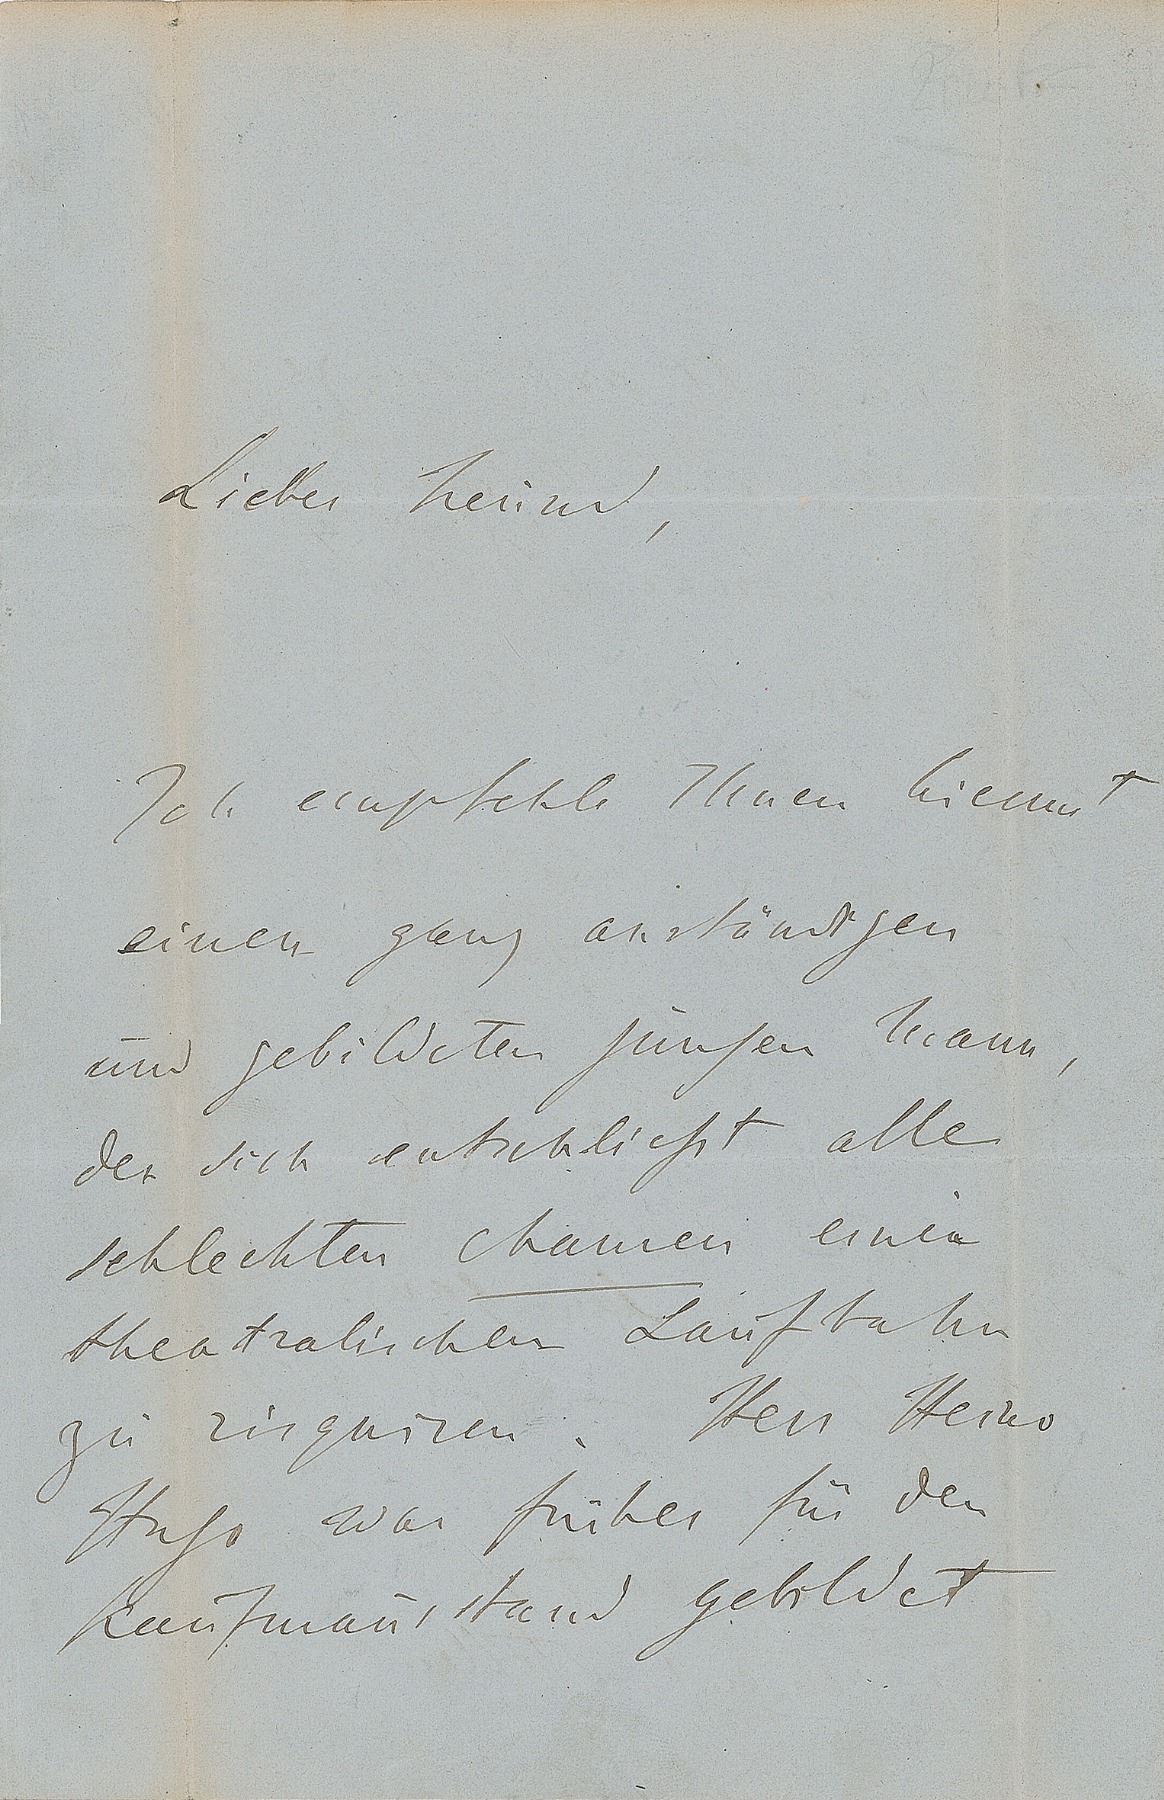 Lieber Freund,
Ich empfehle Ihnen hiemit
einen ganz anständigen
und gebildeten jungen Mann,
der sich entschliesst alle
schlechten Chancen einer
theatralischen Laufbahn
zu risquiren. Herr
Hugo war früher für den
Kaufmannsstand gebildet